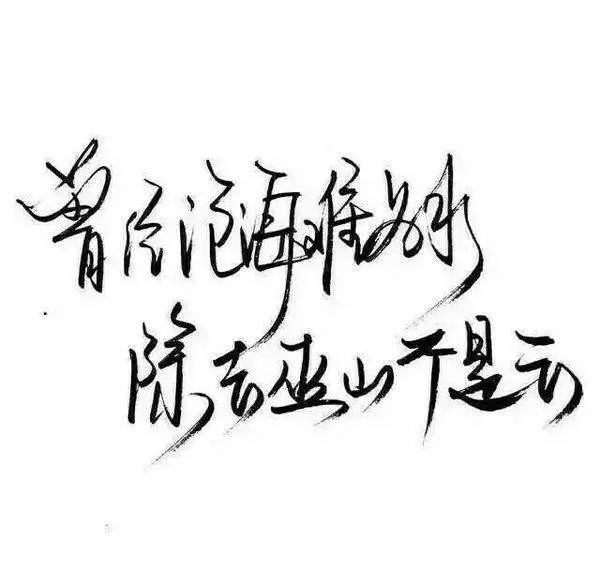 曾经沧海难为水
除去巫山不是云